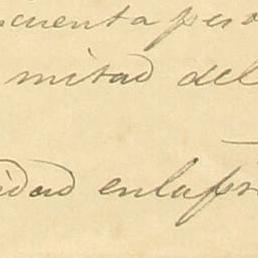 ncuenta peso
mitad del
idad enlapr